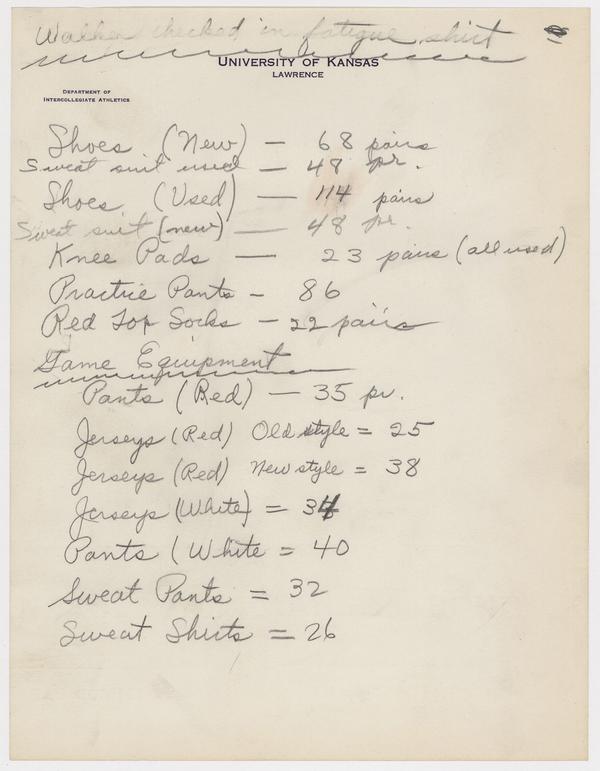 Walker checked in fatigue shirt
University of Kansas
Lawrence
Department of
Intercollegiate Athletics
Shoes (New) — 68 pairs
Sweat suit used — 48 pr.
Shoes (Used) — 114 pairs
Sweat suit (new) — 48 pr.
Knee Pads — 23 pairs (all used)
Practice Pants — 86
Red Top Socks — 22 pairs
Game Equipment
Pants (Red) — 35 pr.
Jerseys (Red) Old style = 25
Jerseys (Red) New style = 38
Jerseys (White) = 34
Pants (White = 40
Sweat Pants = 32
Sweat Shirts = 26